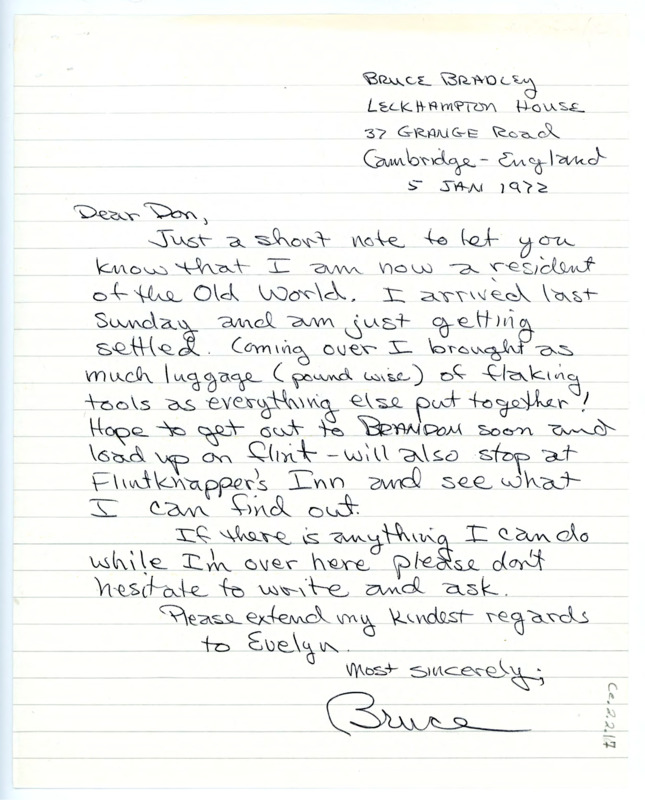 Bruce Bradley
Leckhampton House
37 Grange Road
Cambridge - England
5 JAN 1972
Dear Don,
Just a short note to let you
know that I am now a resident
of the Old World. I arrived last
Sunday and am just getting
settled. Coming over I brought as
much luggage (pound wise) of flaking
tools as everything else put together!
Hope to get out to BRANDON soon and
load up on flint - will also stop at
Flintknapper's Inn and see what
I can find out.
If there is anything I can do
while I'm over here please don't
hesitate to write and ask.
Please extend my kindest regards
to Evelyn.
Most sincerely;
Bruce
Ce.2.2.17